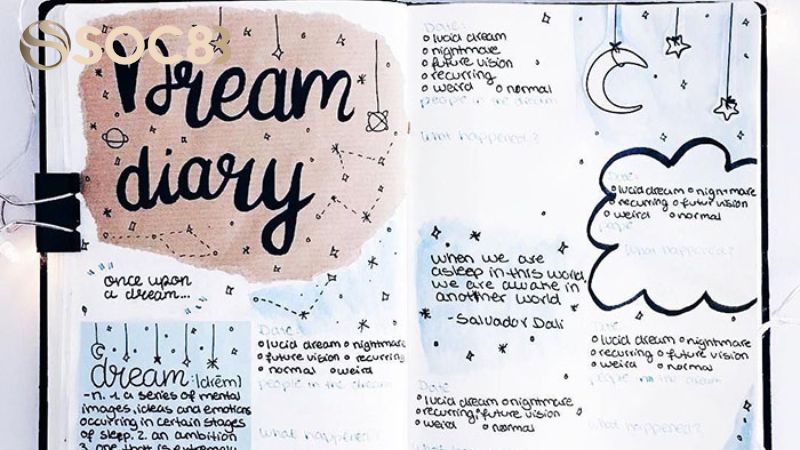 SOC88
Dream
diary
once upon
a dream...
dream:|drēm|
-n. 1. a series of mental
images, ideas and emotions
occurring in certain stages
of sleep. 2. an ambition
3. one that is extremely
Date:
lucid dream nightmare
future vision recurring
normal weird
people in the dream
what happened?
Date:
lucid dream
nightmare
future vision
recurring
weird normal
people in the dream
what happened?
when we are
asleep in this world,
we are awake in
another world
-Salvador Dalí
Date:
lucid dream nightmare
recurring future vision
weird normal
what happened?
Date:
lucid dream nightmare
recurring future vision
weird normal
people
what happened?
Date:
lucid dream nightmare
recurring future vision
weird normal
people in the dream
what happened?